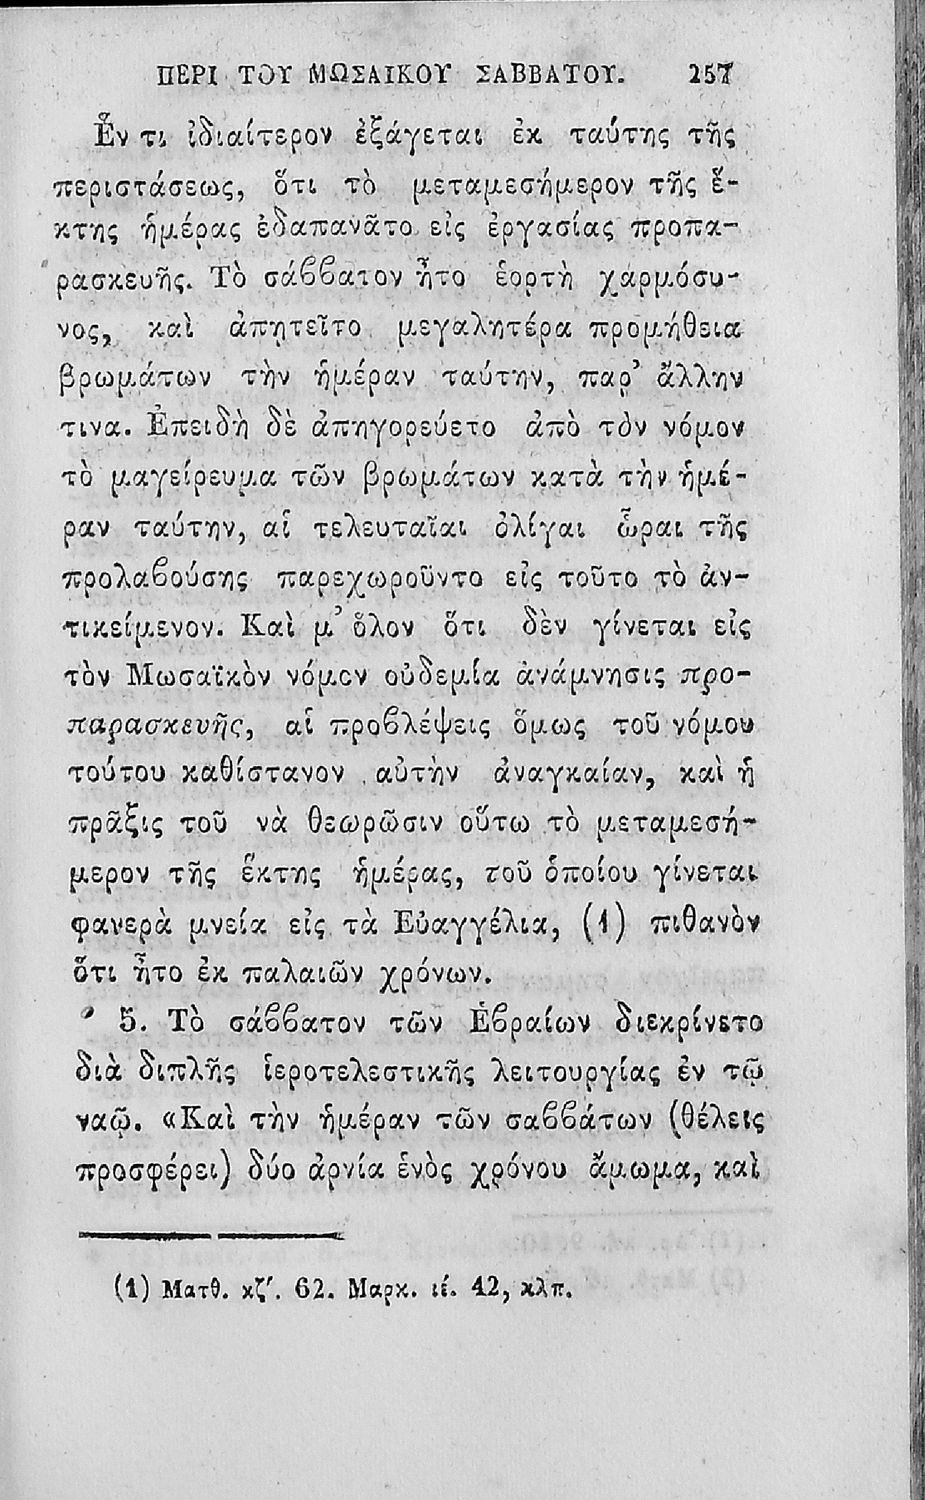 ΠΕΡΙ ΤΟΥ ΜΩΣΑΙΚΟΥ ΣΑΒΒΑΤΟΥ. 257
Ἕν τι ἰδιαίτερον ἐξάγεται ἐκ ταύτης τῆς
περιστάσεως, ὅτι τὸ μεταμεσήμερον τῆς ἕ-
κτης ἡμέρας ἐδαπανᾶτο εἰς ἐργασίας προπα-
ρασκευῆς. Τὸ σάββατον ἦτο ἑορτὴ χαρμόσυ-
νος, καὶ ἀπῃτεῖτο μεγαλητέρα προμήθεια
βρωμάτων τὴν ἡμέραν ταύτην, παρ’ ἄλλην
τινα. Ἐπειδὴ δὲ ἀπηγορεύετο ἀπὸ τὸν νόμον
τὸ μαγείρευμα τῶν βρωμάτων κατὰ τὴν ἡμέ-
ραν ταύτην, αἱ τελευταῖαι ὀλίγαι ὧραι τῆς
προλαβούσης παρεχωροῦντο εἰς τοῦτο τὸ ἀν-
τικείμενον. Καὶ μ’ ὅλον ὅτι δὲν γίνεται εἰς
τὸν Μωσαϊκὸν νόμον οὐδεμία ἀνάμνησις προ-
παρασκευῆς, αἱ προβλέψεις ὅμως τοῦ νόμου
τούτου καθίστανον αὐτὴν ἀναγκαίαν, καὶ ἡ
πρᾶξις τοῦ νὰ θεωρῶσιν οὕτω τὸ μεταμεσή-
μερον τῆς ἕκτης ἡμέρας, τοῦ ὁποίου γίνεται
φανερὰ μνεία εἰς τὰ Εὐαγγέλια, (1) πιθανὸν
ὅτι ἦτο ἐκ παλαιῶν χρόνων.
5. Τὸ σάββατον τῶν Ἑβραίων διεκρίνετο
διὰ διπλῆς ἱεροτελεστικῆς λειτουργίας ἐν τῷ
ναῷ. «Καὶ τὴν ἡμέραν τῶν σαββάτων (θέλεις
προσφέρει) δύο ἀρνία ἑνὸς χρόνου ἄμωμα, καὶ
(1) Ματθ. κζ′. 62. Μαρκ. ιέ. 42, κλπ.